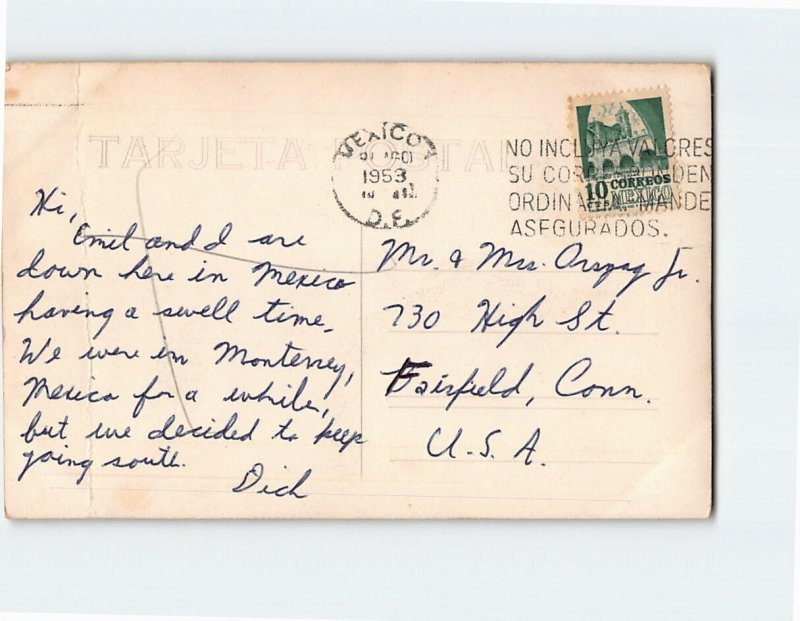 TARJETA POSTAL
MEXICO
1953
D.F.
NO INCLUYA VALORES
SU CORRESPONDEN
ORDINARIA MANDE
ASEGURADOS.
10 CORREOS
MEXICO
Hi,
Emil and I are
down here in Mexico
having a swell time.
We were in Monterrey,
Mexico for a while,
but we decided to keep
going south.
Dick
Mr. & Mrs. Jr.
730 High St.
Fairfield, Conn.
U.S.A.